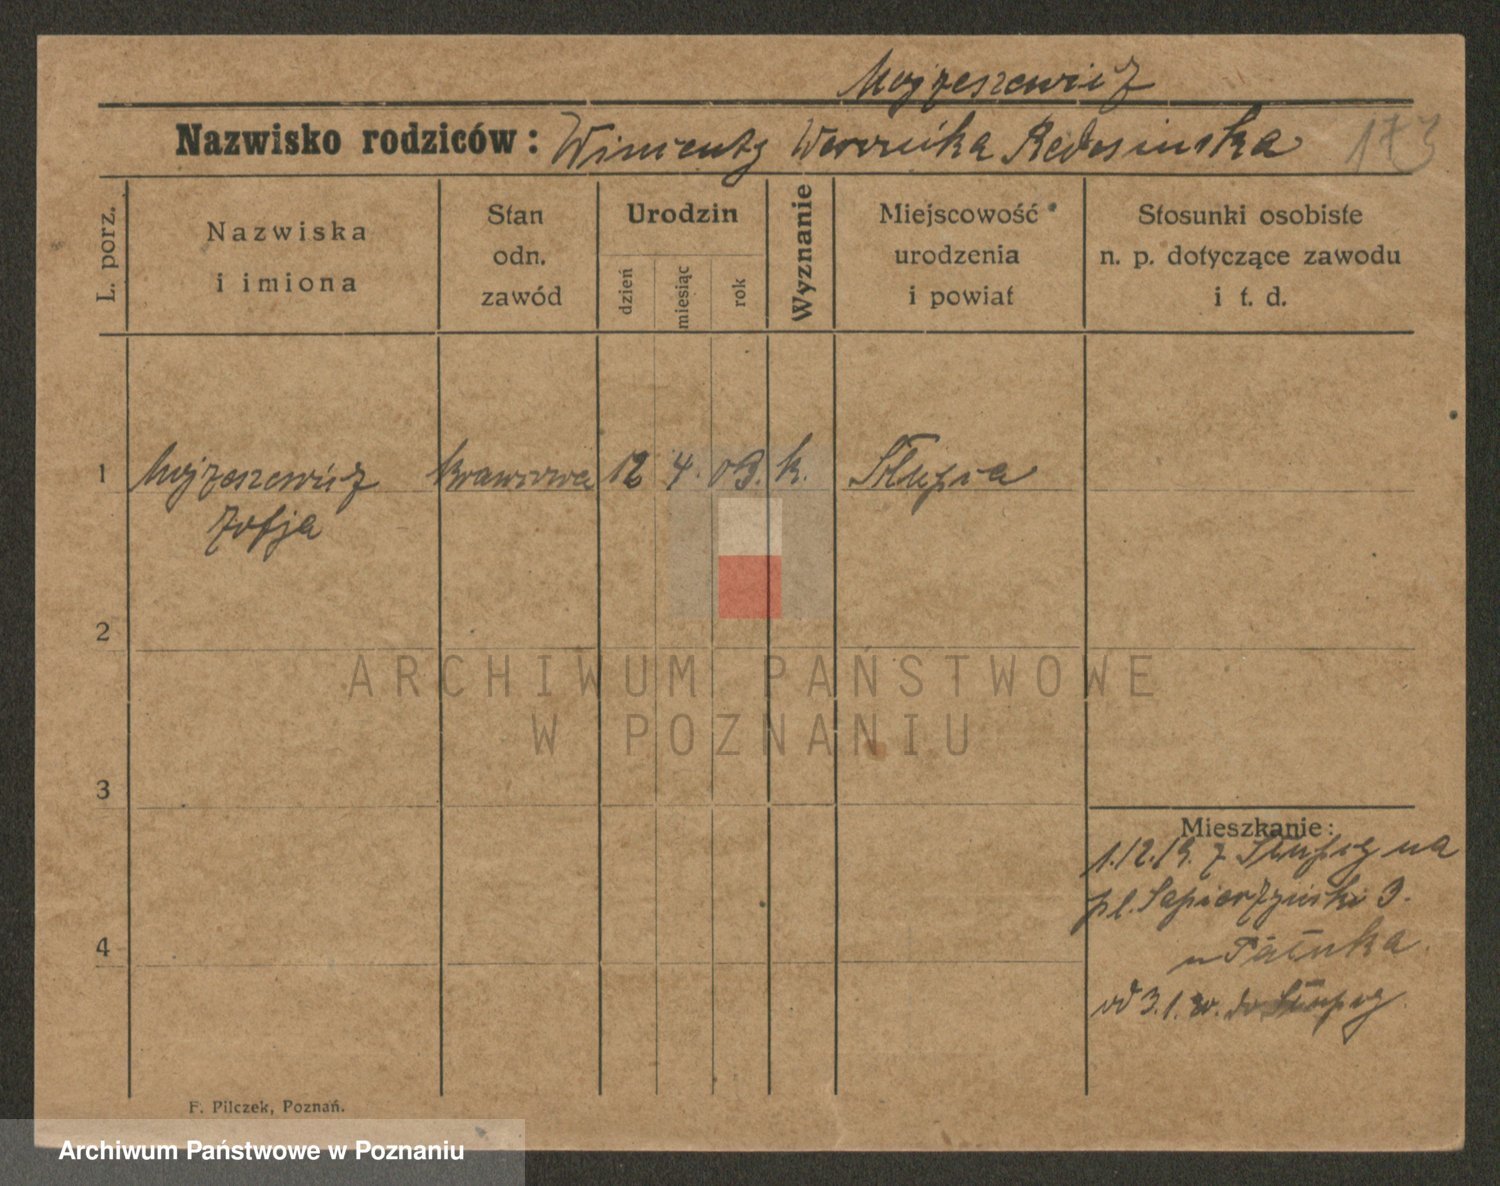 Mojzeszewicz
Nazwisko rodziców: Wincenty Weronika Redosinska 173
L. porz.
Nazwiska
i imiona
Stan
odn.
zawód
Urodzin
dzień
miesiąc
rok
Wyznanie
Miejscowość
urodzenia
i powiat
Stosunki osobiste
n. p. dotyczące zawodu
i t. d.
1 Mojzeszewicz Krawcowa 12 4. 03. k. Słupia
Zofja
2
3
4
Mieszkanie:
1.12.19. z Słupig na
pl. Sapierzynski 3.
od 3.1. 20. do Słupig
F. Pilczek, Poznań.
ARCHIWUM PAŃSTWOWE
W POZNANIU
Archiwum Państwowe w Poznaniu